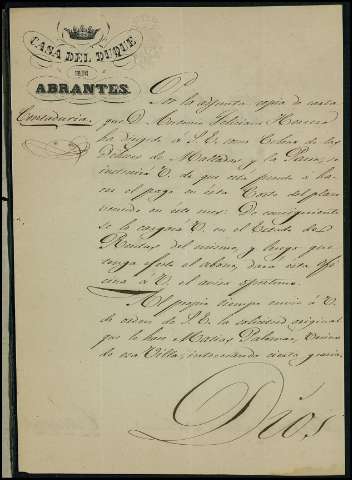 CASA DEL DUQUE
DE
ABRANTES.
Contaduria.
Por la adjunta copia de carta
que D. Antonio Feliciano Herrera
ha dirigido á S. E. como Colono de las
Dehesas de y la Parra, se
instruirá V. de que está pronto á ha-
cer el pago en esta Corte del plazo
vencido en este mes: De consiguiente
se lo cargará V. en el Estado de
Rentas del mismo, y luego que
tenga efecto el abono, dará esta Ofi-
cina á V. el aviso oportuno.
Al propio tiempo envio á V.
de orden de S. E. la solicitud original
que le hace Matias Palomar, Vecino
de esa Villa, interesando cierta gracia.
Dios